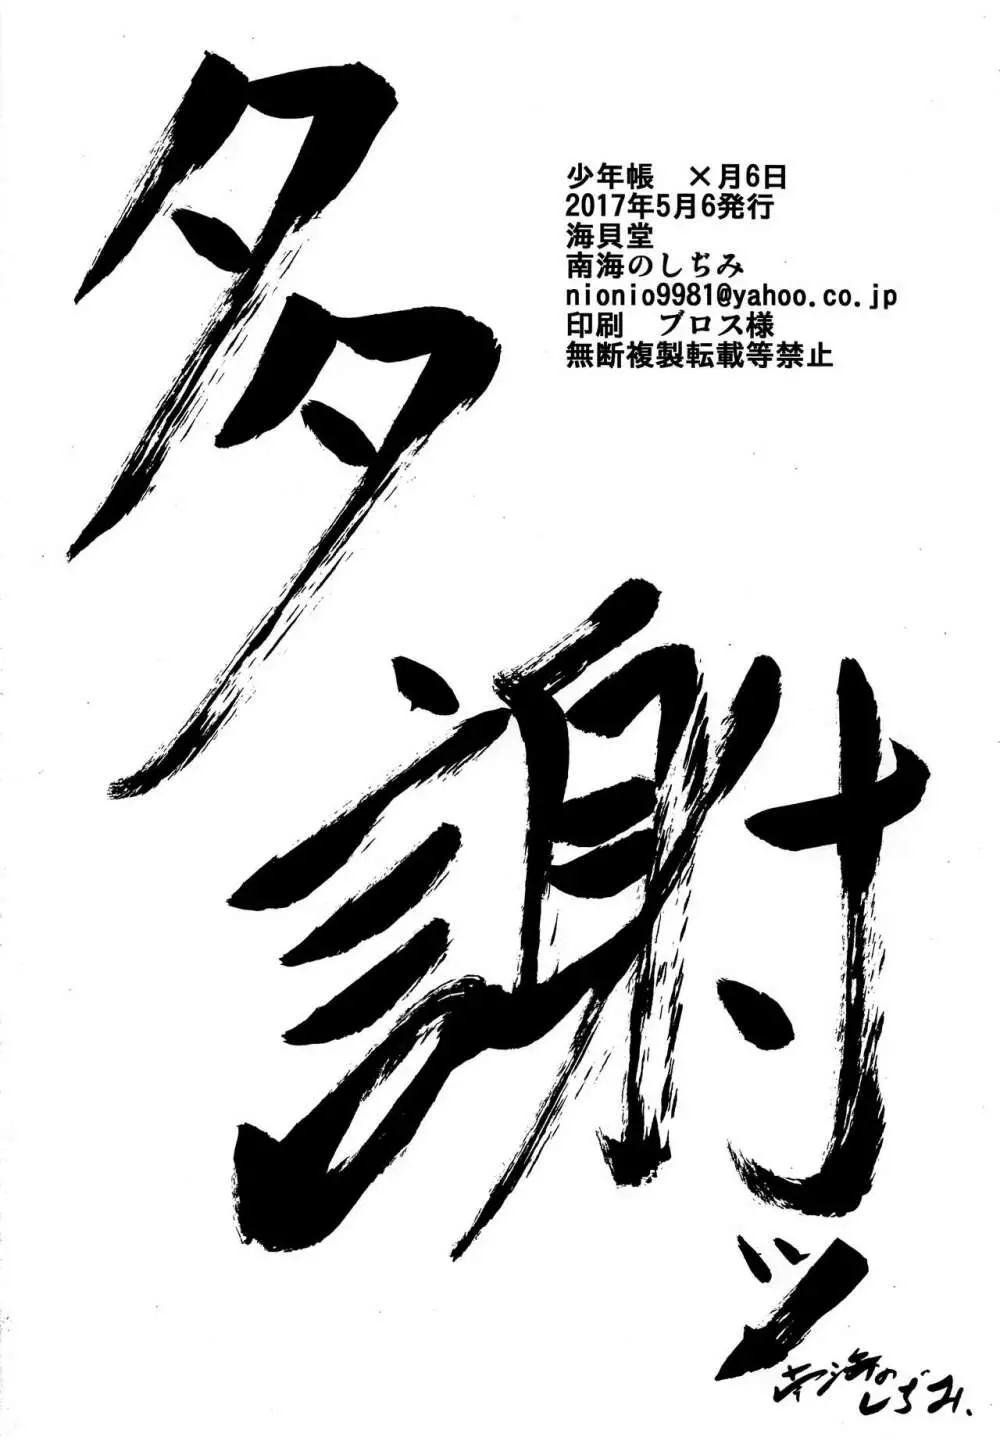 少年帳　×月6日
2017年5月6発行
海貝堂
南海のしぢみ
nionio9981@yahoo.co.jp
印刷　ブロス様
無断複製転載等禁止
多謝ッ
南海の
しぢみ、